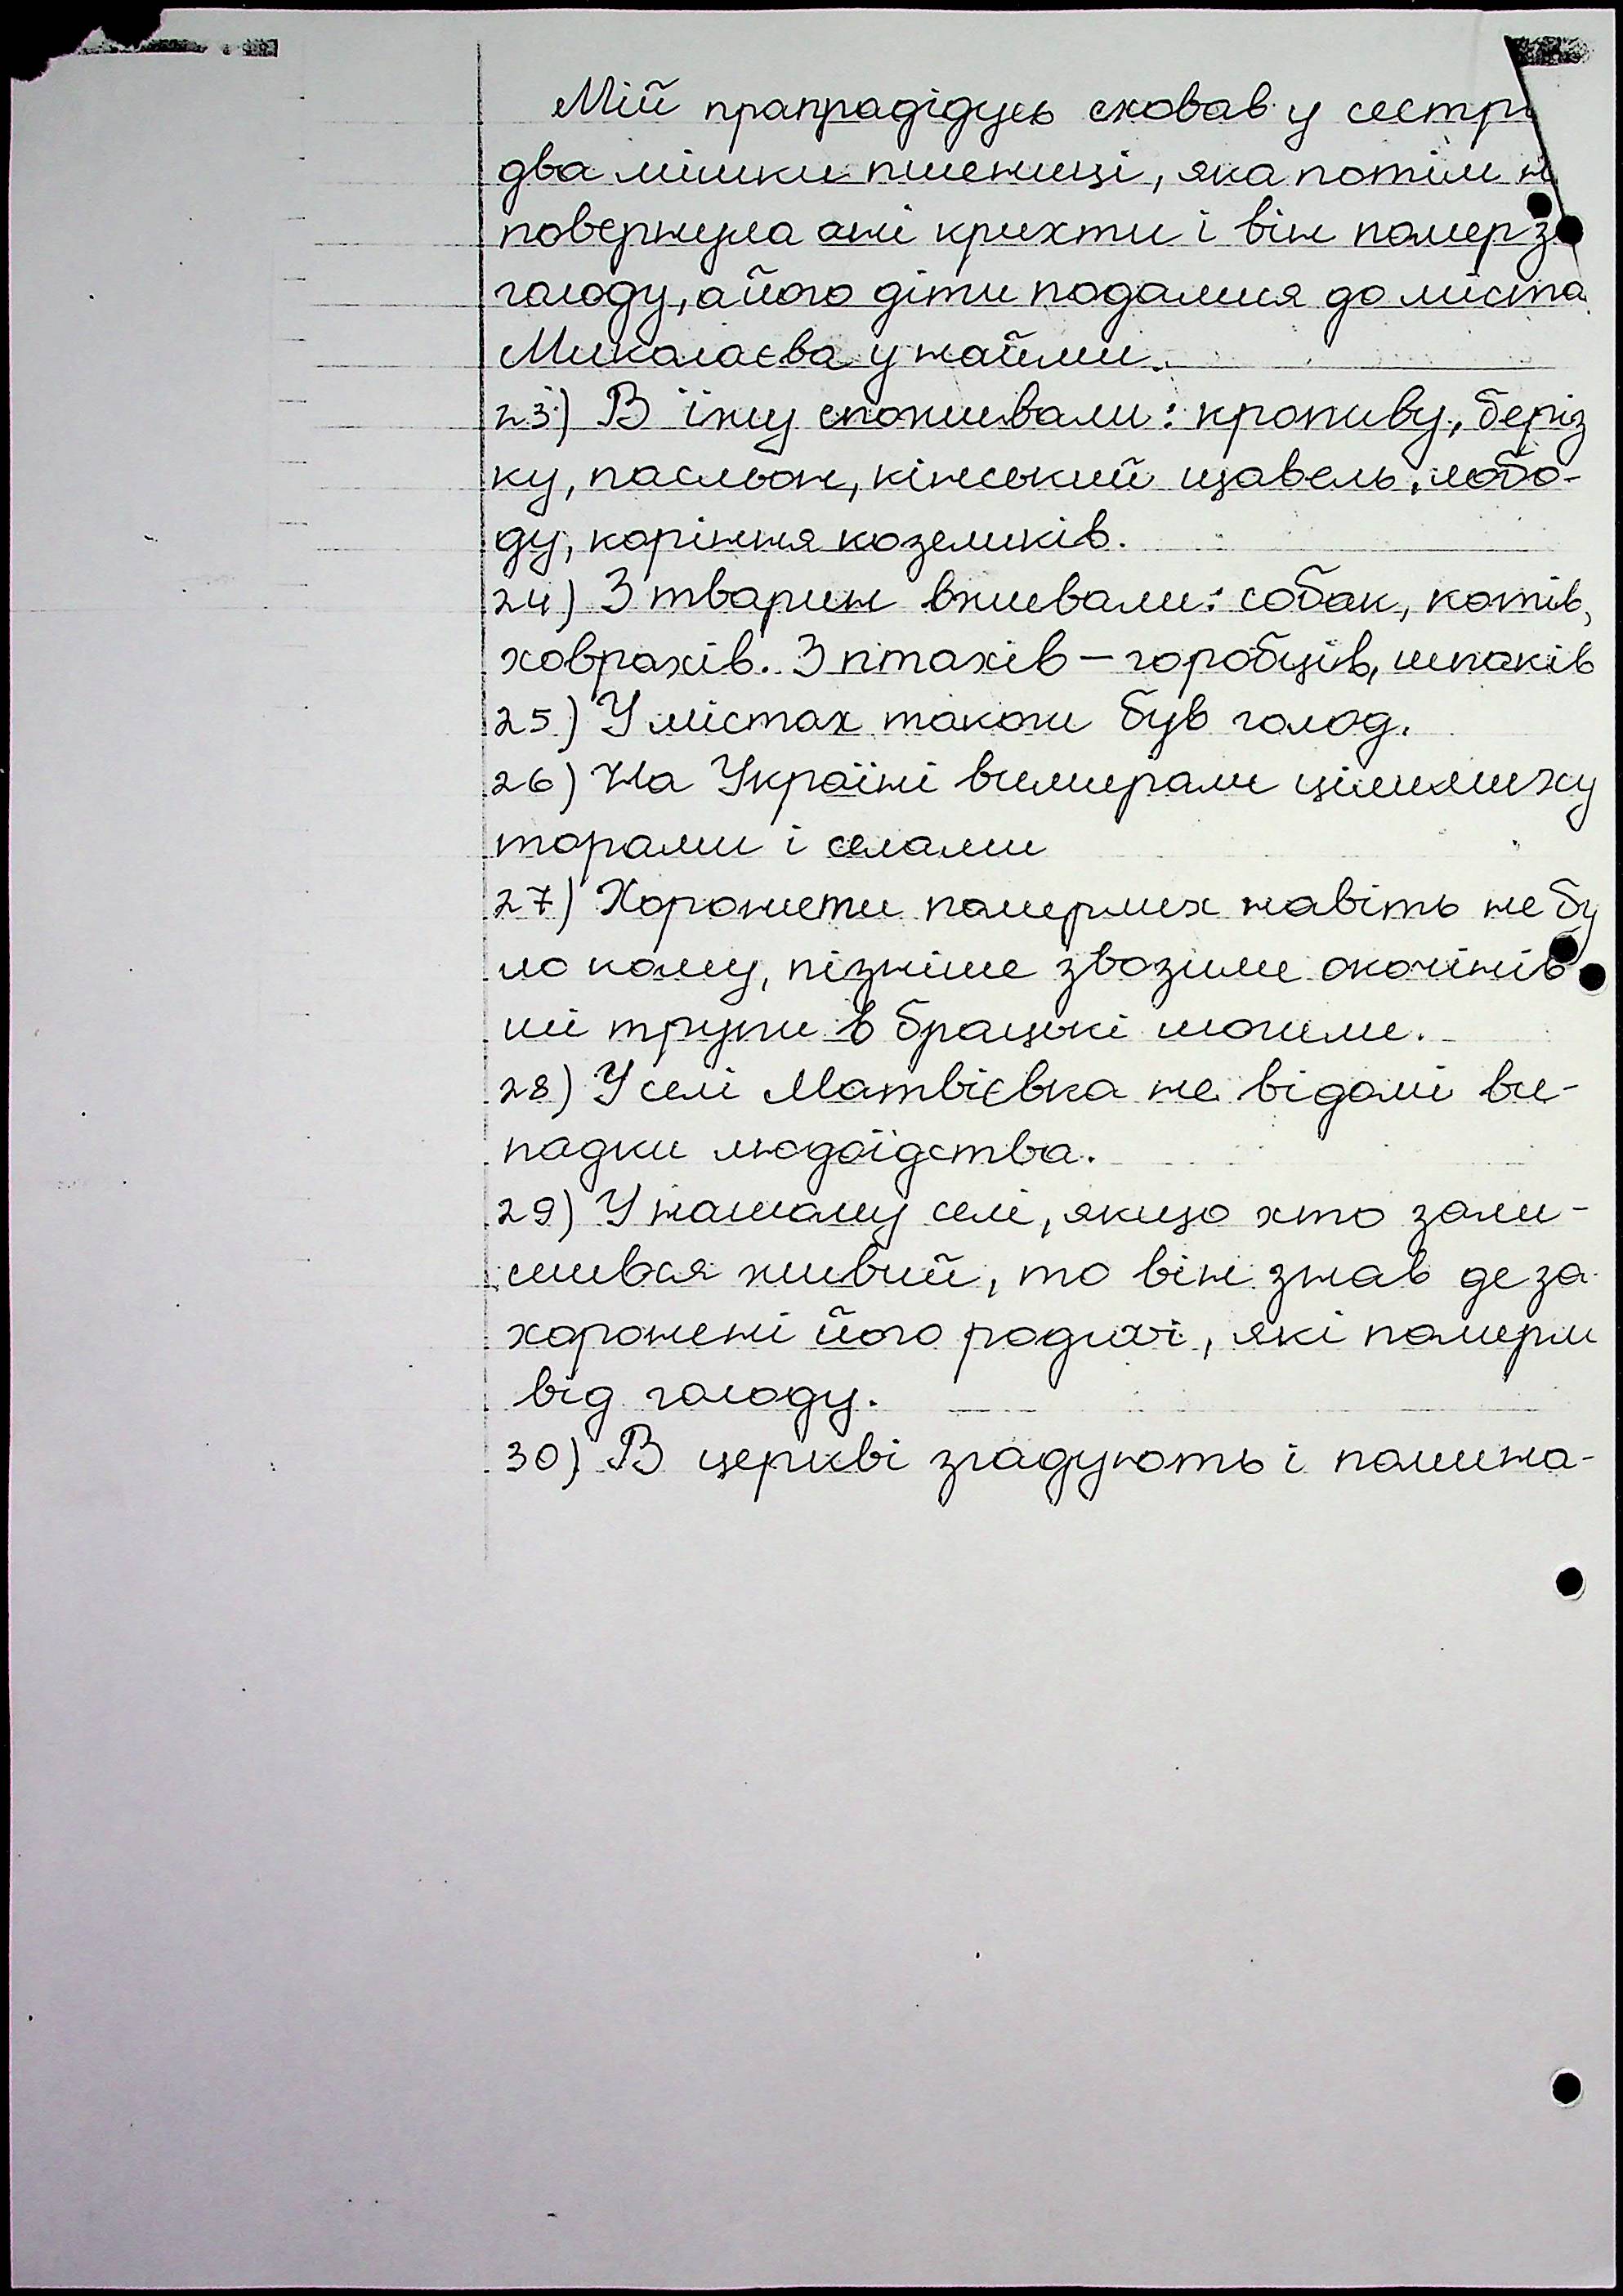 Мій прапрадідусь сховав у сестри
два мішки пшениці, яка потім не
повернула ані крихти і він помер з
голоду, а його діти подалися до міста
Миколаєва у найми.
23) В їжу споживали: кропиву, беріз
ку, пасльон, кінський щавель, лобо-
ду, коріння козеликів.
24) З тварин вживали: собак, котів,
ховрахів. З птахів – горобців, шпаків
25) У містах також був голод.
26) На Україні вимирали цілими ху
торами і селами
27) Хоронити померлих навіть не бу
ло кому, пізніше звозили окочинів
ші трупи в брацькі могили.
28) У селі Матвієвка не відомі ви-
падки людоїдства.
29) У нашому селі, якщо хто зали-
шився живий, то він знав де за
хоронені його родичі, які померли
від голоду.
30) В церкві згадують і помина-